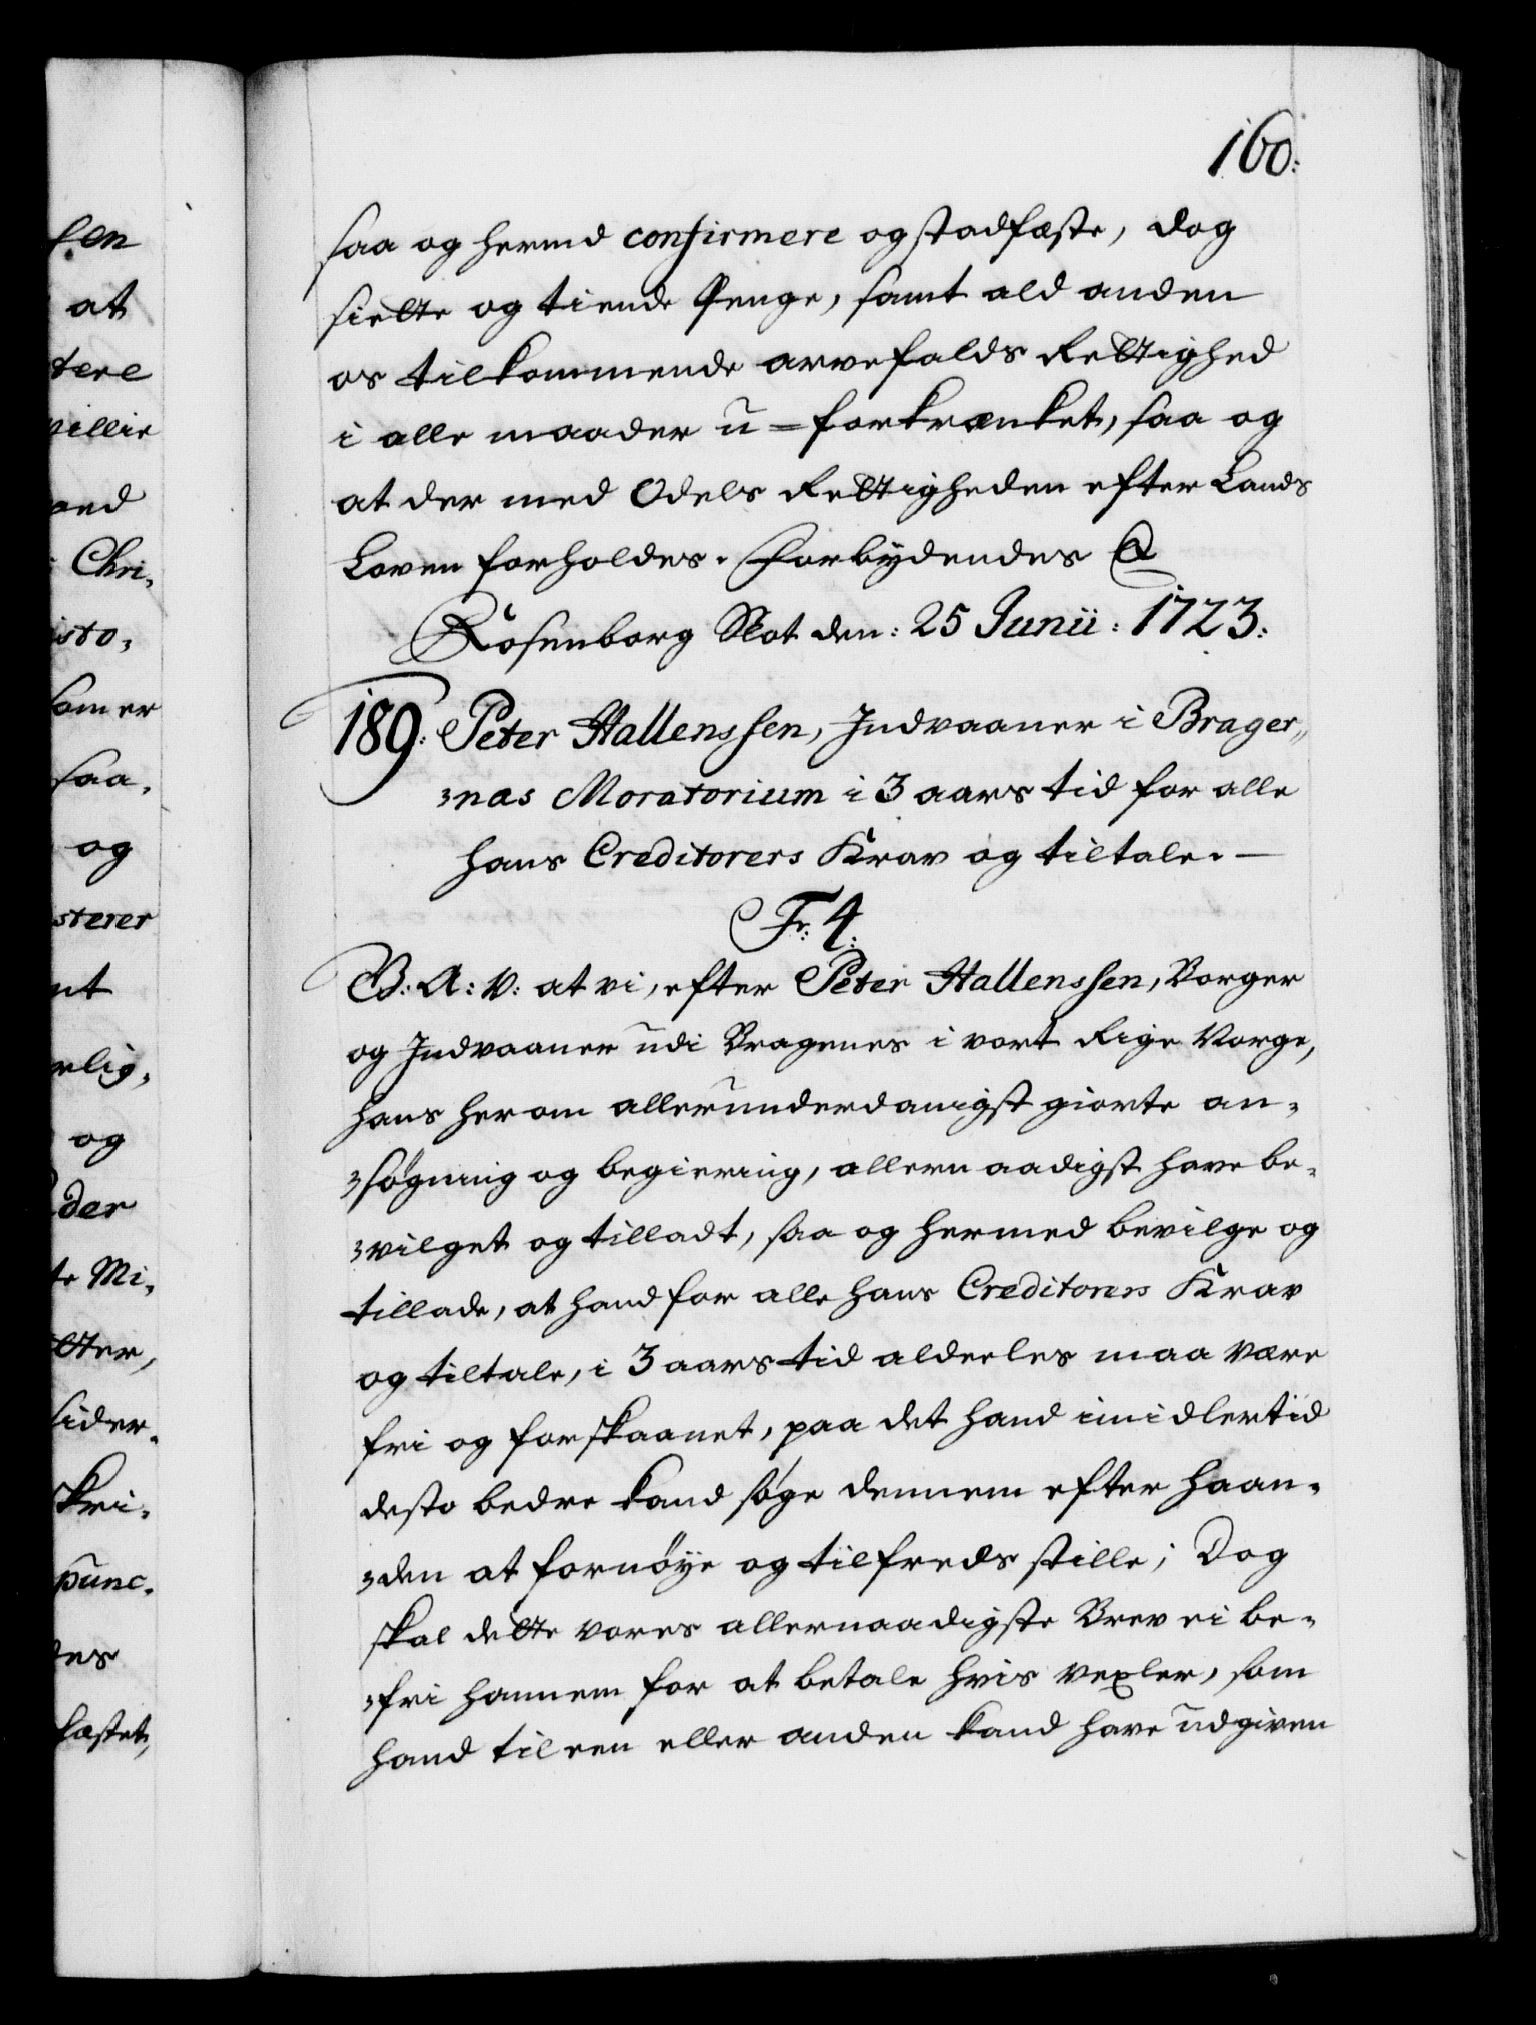 160:
saa og hermed confirmere og stadfæste, dog
sielte og tiende Penge, samt ald anden
os tilkommende arvefalds Rettighed
i alle maader u=forkrænket, saa og
at der med Odels Rettigheden efter Lands
Loven forholdes. Forbydendes &
Rosenborg Slot den: 25 Junii: 1723:
189: Peter Hallenssen, Indvaaner i Brager„
„nas Moratorium i 3 aars tid for alle
hans Creditorers Krav og tiltale. —
Fr: 4:
G: A: V: at vi, efter Peter Hallenssen, Borger
og Indvaaner udi Bragenes i vort Rige Norge,
hans herom allerunderdanigst giorte an„
„søgning og begiering, allernaadigst have be„
„vilget og tilladt, saa og hermed bevilge og
tillade, at hand for alle hans Creditorers Krav
og tiltale, i 3 aars tid aldeeles maa være
fri og forskaanet, paa det hand imidlertid
desto bedre kand søge dennem efter haan„
„den at fornøye og tilfreds stille; Dog
skal dette vores allernaadigste Brev ei be„
„fri hannem for at betale hvis vexler, som
hand til een eller anden kand have udgiven
sen
at
tere
villie
Chri„
isto„
som er
saa„
og
sterer
nt
og
der
te Mi„
sider„
Skri„
punc„
fæstet,